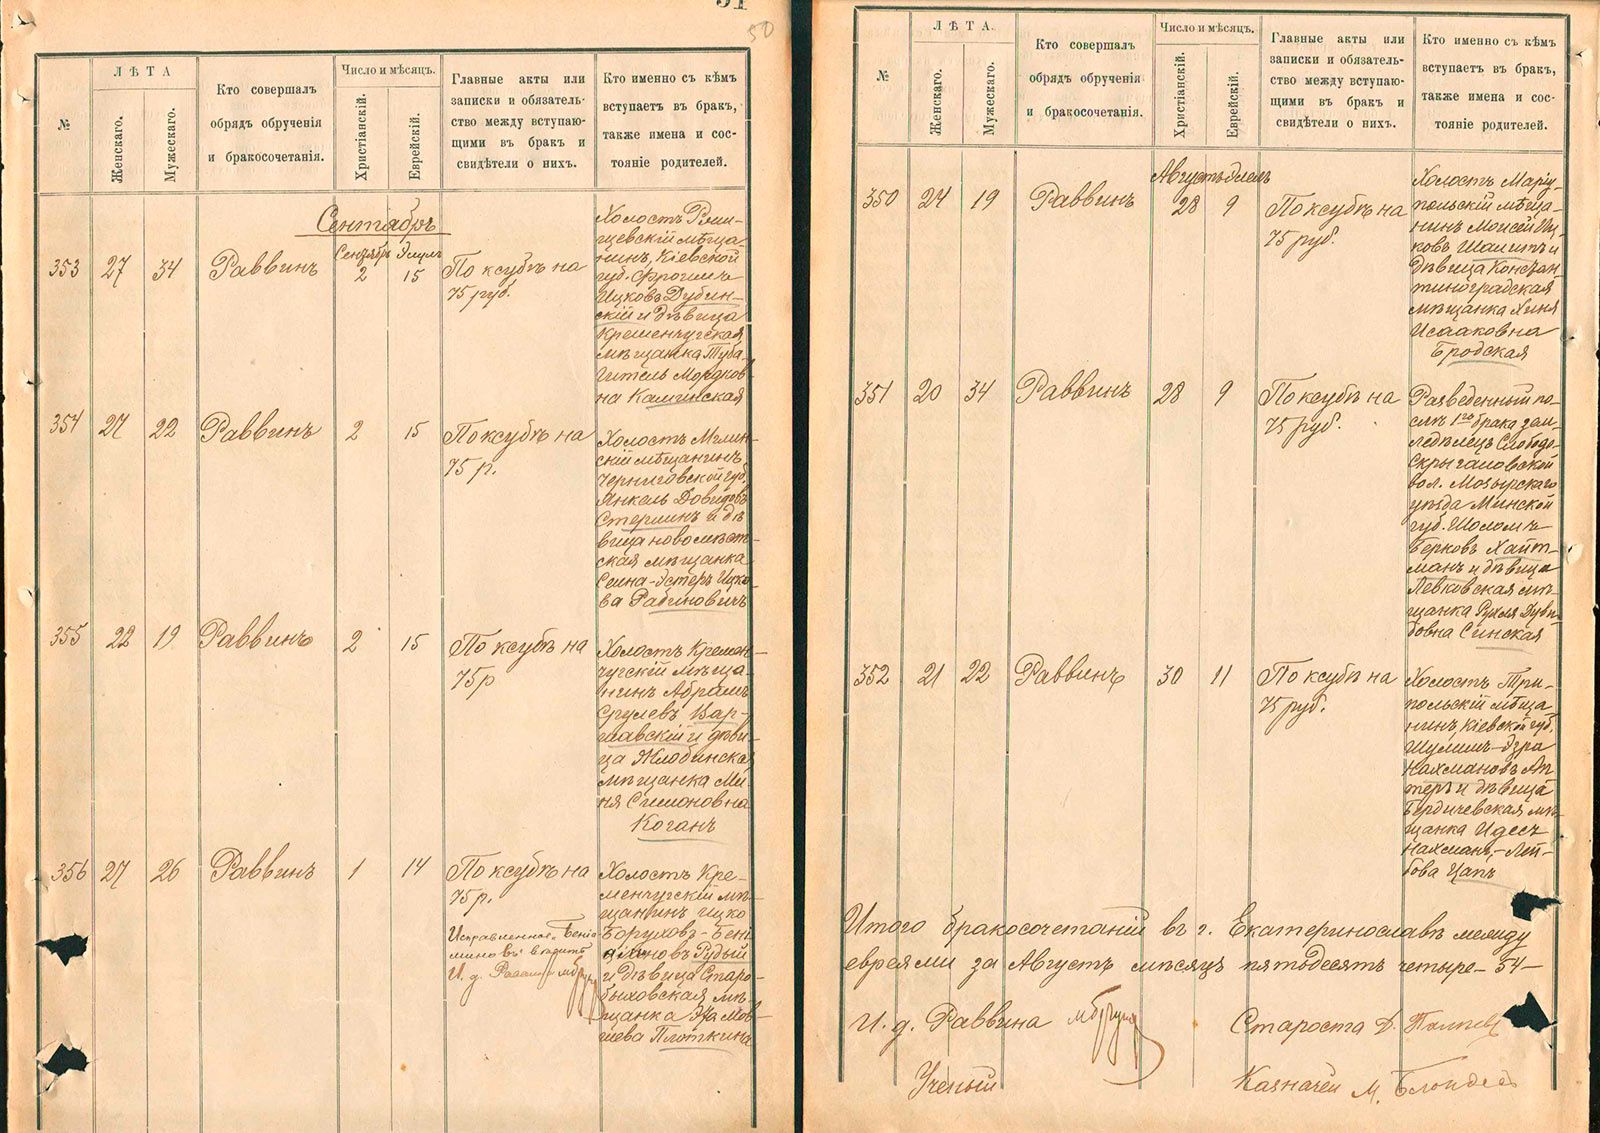 50
№
ЛѢТА
Женскаго.
Мужескаго.
Кто совершалъ
обрядъ обрученія
и бракосочетанія.
Число и мѣсяцъ.
Христіанскій.
Еврейскій.
Главные акты или
записки и обязатель-
ство между вступаю-
щими въ бракъ и
свидѣтели о нихъ.
Кто именно съ кѣмъ
вступаетъ въ бракъ,
также имена и сос-
тояніе родителей.
Сентябрь
353 27 34 Раввинъ
Сентябрь Элулъ
2 15
По ксубѣ на
75 руб.
Холостъ Ржи-
щевскій мѣща-
нинъ, Кіевской
губ. Фроимъ
Ицковъ Дубин-
скій и дѣвица
Кременчугская
мѣщанка Туба-
Гитель Мордков-
на Каминская
354 27 22 Раввинъ 2 15 По ксубѣ на
75 р.
Холостъ Мглин-
скій мѣщанинъ
Черниговской губ.
Янкель Довидовъ
Стерминъ и дѣ
вица новомѣст-
ская мѣщанка
Сима-Эстеръ Ицко-
ва Рабиновичъ
355 22 19 Раввинъ 2 15 По ксубѣ на
75 р
Холостъ Кремен-
чугскій мѣща-
нинъ Абрамъ
Срулевъ Вар-
шавскій и дѣви-
ца Жлобинская
мѣщанка Ми-
ня Симоновна
Коганъ
356 27 26 Раввинъ 1 14 По ксубѣ на
75 р.
Исправленное "Бенiа
миновъ" вѣрить
И. д. Раввина
Холостъ Кре-
менчугскій мѣ-
щанинъ Ицко
Боруховъ-Бені
аминовъ Рудый
и дѣвица Старо-
быховская мѣ-
щанка Эта Мов-
шева Плоткина
№
ЛѢТА.
Женскаго.
Мужескаго.
Кто совершалъ
обрядъ обрученія
и бракосочетанія.
Число и мѣсяцъ.
Христіанскій.
Еврейскій.
Главные акты или
записки и обязатель-
ство между вступаю-
щими въ бракъ и
свидѣтели о нихъ.
Кто именно съ кѣмъ
вступаетъ въ бракъ,
также имена и сос-
тояніе родителей.
Августъ Элулъ
350 24 19 Раввинъ 28 9 По ксубѣ на
75 руб.
Холостъ Маріу-
польскій мѣща-
нинъ Моисей Иц-
ковъ Шапиръ и
дѣвица Констан-
тиноградская
мѣщанка Хиня
Исааковна
Бродская
351 20 34 Раввинъ 28 9 По ксубѣ на
75 руб.
Разведенный по-
слѣ 1го брака зем-
ледѣлецъ Слободо-
скрыгаловской
вол. Мозырскаго
уѣзда Минской
губ. Шоломъ
Берковъ Хайт-
манъ и дѣвица
Левковская мѣ-
щанка Рухля Дуви-
довна Синская
352 21 22 Раввинъ 30 11 По ксубѣ на
75 руб.
Холостъ Три-
польскій мѣща-
нинъ, Кіевской губ.
Шулимъ-Эзра
Нахмановъ Ал-
теръ и дѣвица
Бердичевская мѣ-
щанка Идесъ
Нахманъ-Лей-
бова Цапъ
Итого бракосочетаній въ г. Екатеринославѣ между
евреями за Августъ мѣсяцъ пятьдесятъ четыре-54-
И. д. Раввина Староста Д.
Ученый Казначей М.